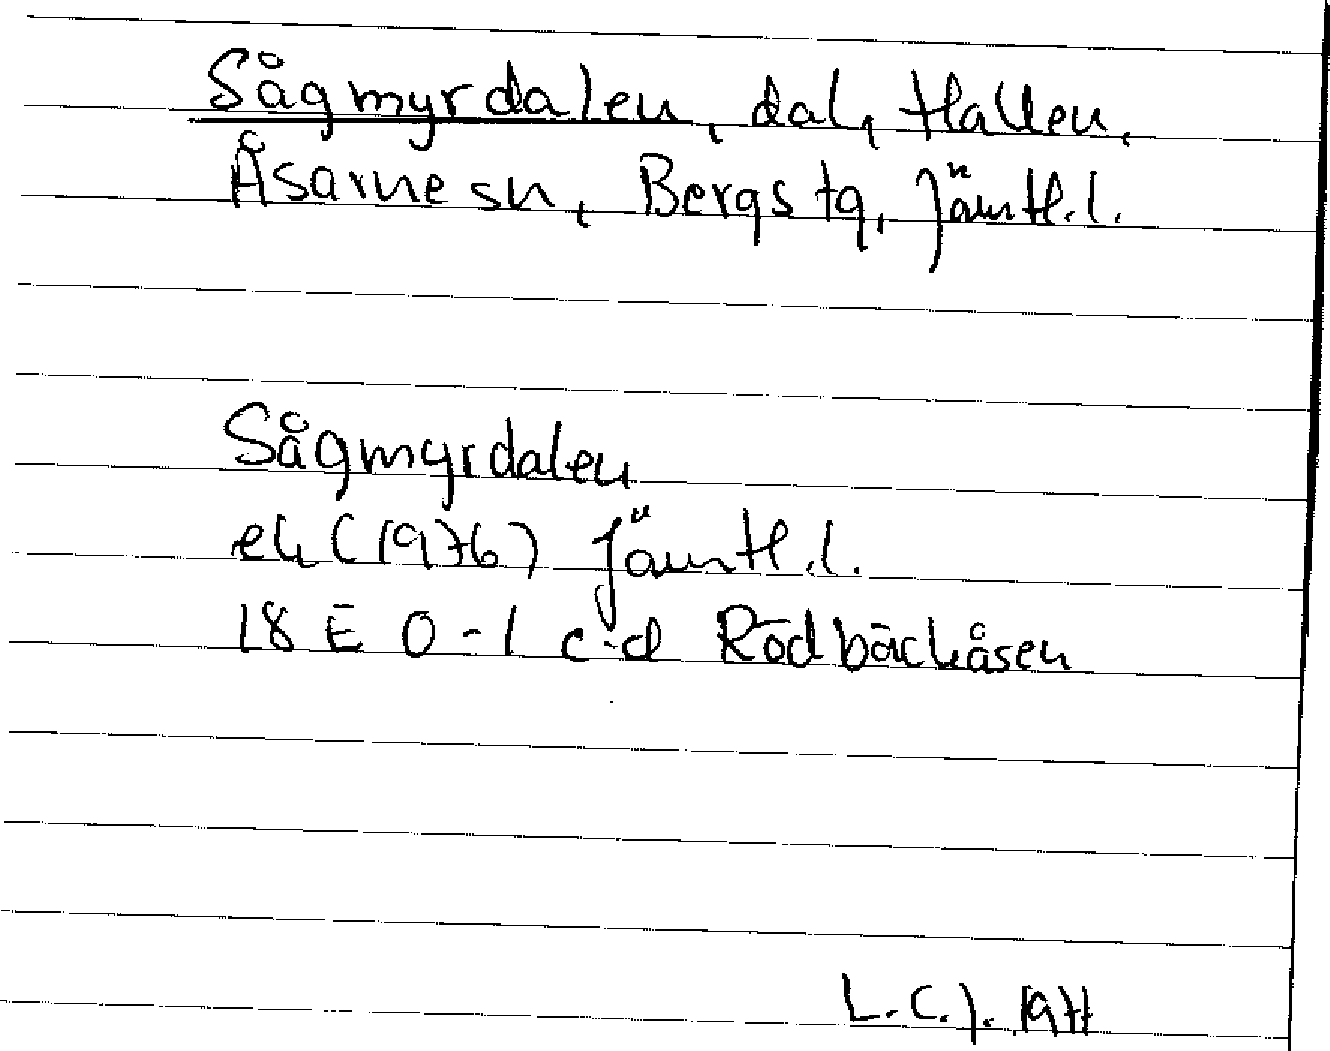 Sågmyrdalen, dal, Hallen,
Åsarne sn, Bergs tg, Jämtl.l.
Sågmyrdalen
ek (1976) Jämtl.l.
18 E 0-1 c-d Rödbäckåsen
L.C.J. 1977